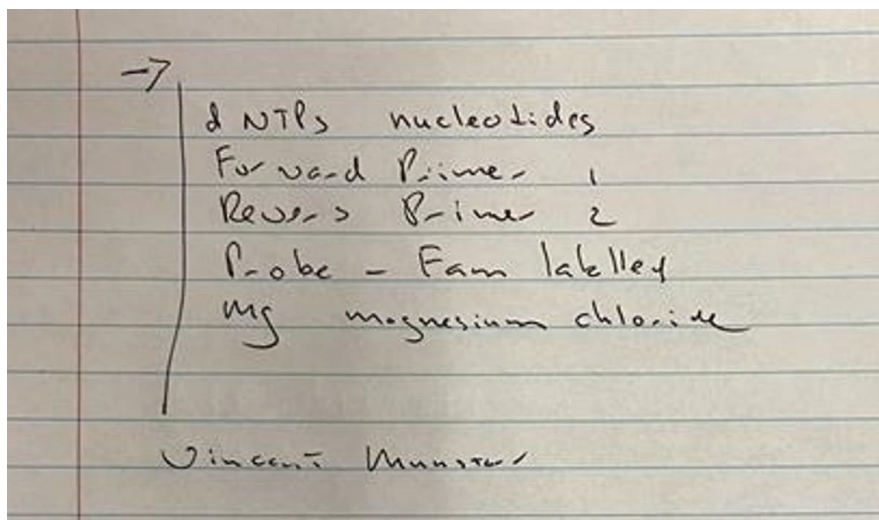 →
dNTPs nucleotides
Forward Primer 1
Revers Primer 2
Probe - Fam labelled
Mg magnesium chloride
Vincent Munster